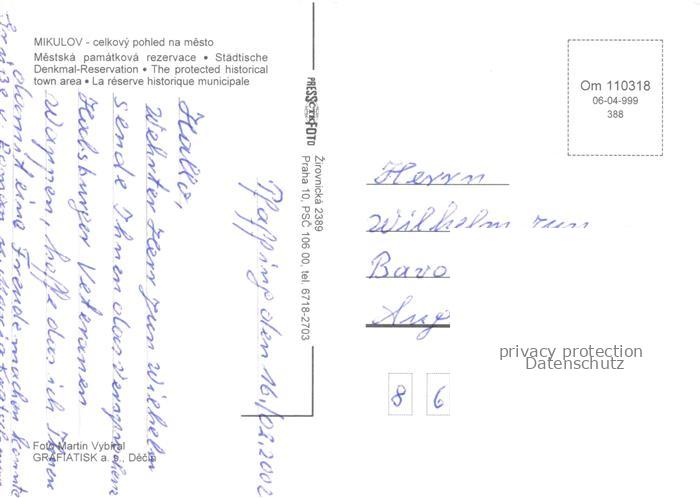 MIKULOV - celkový pohled na město
Městská památková rezervace • Städtische
Denkmal-Reservation • The protected historical
town area • La réserve historique municipale
PRESSFOTO
Žirovnická 2389
Praha 10, PSČ 106 00, tel. 6718-2703
Om 110318
06-04-999
388
den 16./02.2002
Hallo,
Herr jun Wilhelm
sende Ihnen das
Habsburger Veteranen
Wappen, hoffe das ich Ihnen
damit eine Freude machen konnte
Herrn
Wilhelm jun
Bavo
Aug
privacy protection
Datenschutz
8 6
Foto Martin Vybíral
GRAFIATISK a. s., Děčín